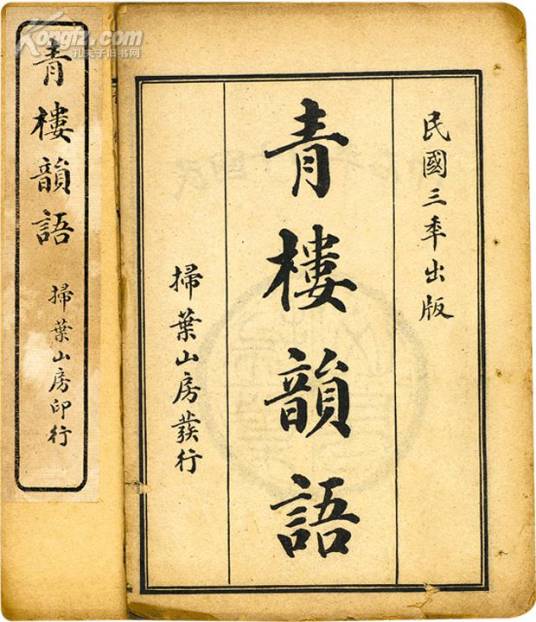 民國三年出版
青樓韻語
掃葉山房發行
青樓韻語
掃葉山房印行
Kongfz.com
孔夫子旧书网